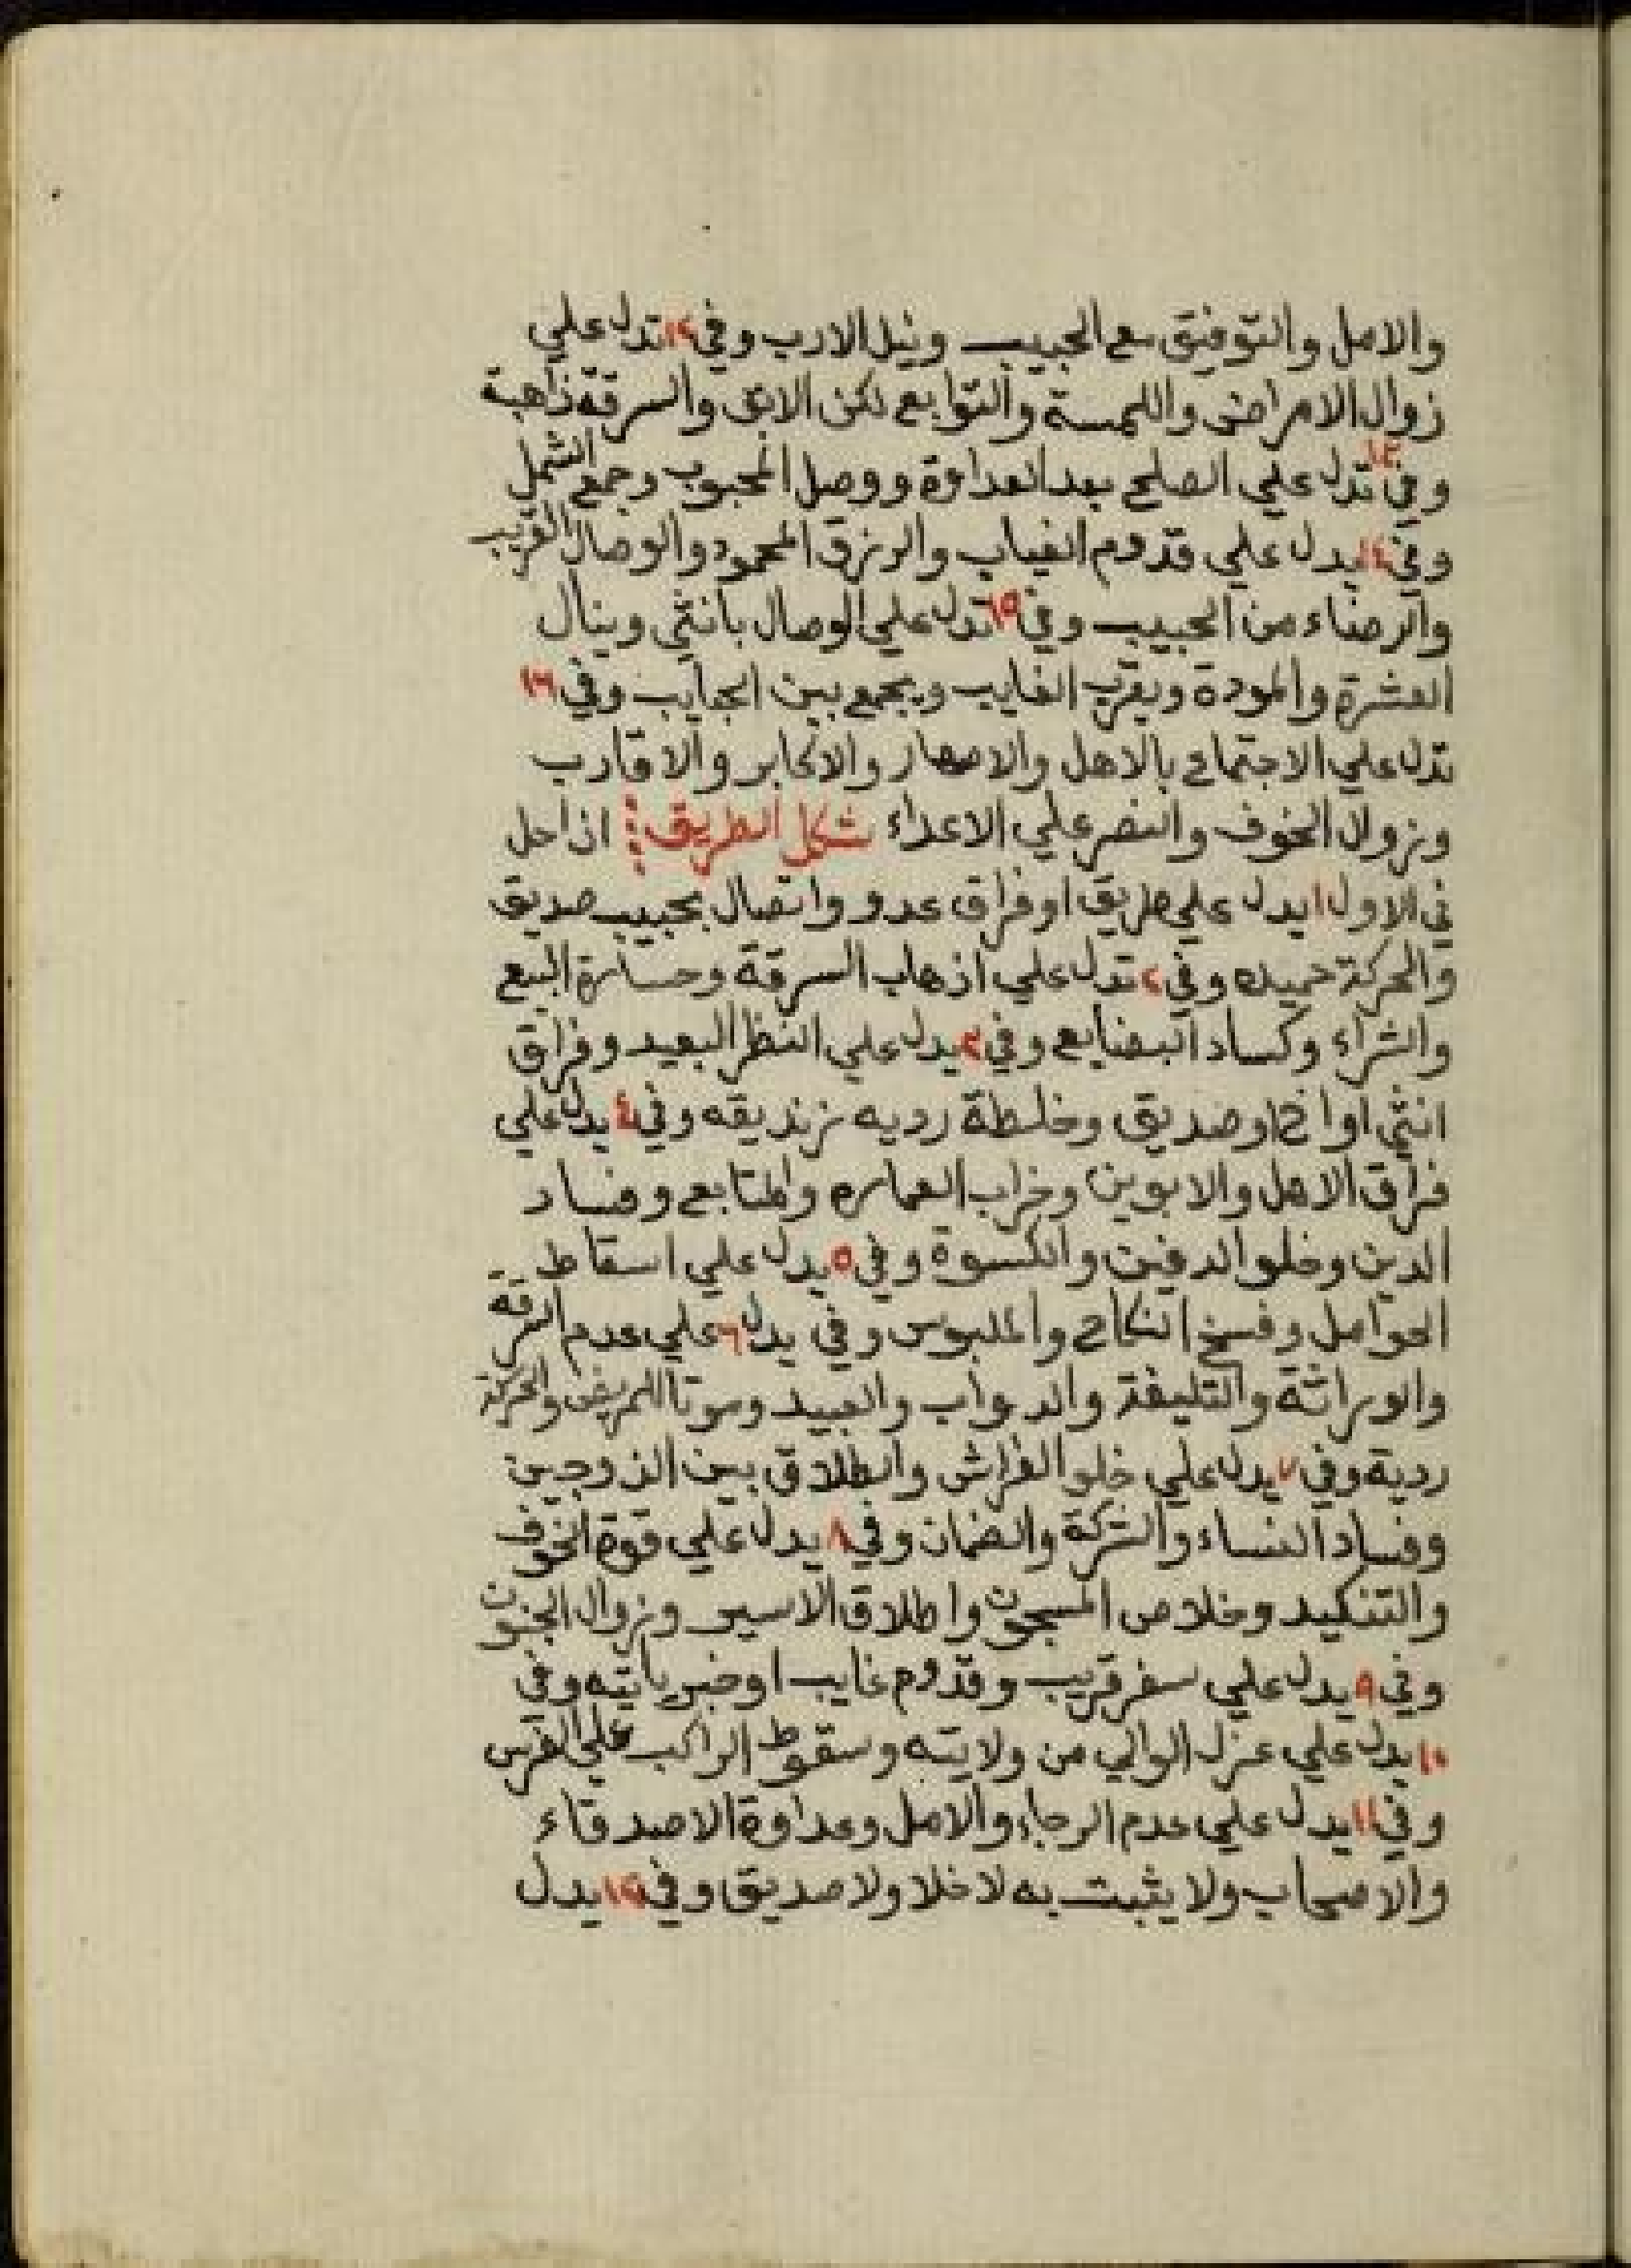 والامل والتوفيق مع الحبيب ونيل الارب وفي ١٢ تدل علي
زوال الامراض واللمسة والتوابع لكن الابق والسرقة ذاهبة
وفي ١٣ تدل علي الصلح بعد العداوة ووصل المحبوب وجمع الشمل
وفي ١٤ يدل علي قدوم الغياب والرزق المحمود والوصال القريب
والرضاء من الحبيب وفي ١٥ تدل علي الوصال بانثي وينال
العشرة والمودة ويقرب الغايب ويجمع بين الحبايب وفي ١٦
تدل علي الاجتماع بالاهل والاصهار والاكابر والاقارب
وزوال الخوف والنصر علي الاعداء شكل الطريق ⁞ اذا حل
في الاول ١ يدل علي طريق او فراق عدو واتصال بحبيب صديق
والحركة حميده وفي ٢ تدل علي اذهاب السرقة وخسارة البيع
والشراء وكساد البضايع وفي ٣ يدل علي النظر البعيد وفراق
انثي او اخ او صديق وخلطة رديه زنديقه وفي ٤ يدل علي
فراق الاهل والابوين وخراب العماره والمتابع وفساد
الدين وخلو الدفين والكسوة وفي ٥ يدل علي اسقاط
الحوامل وفسخ النكاح والملبوس وفي يدل ٦ علي عدم السرقة
والوراثة والتليفة والدواب والعبيد وموت المريض والحركة
ردية وفي ٧ يدل علي خلو الفراش والطلاق بين الزوجين
وفساد النساء والشركة والضمان وفي ٨ يدل علي قوة الخوف
والتنكيد وخلاص المسجون واطلاق الاسير وزوال الجنون
وفي ٩ يدل علي سفر قريب وقدوم غايب او خبر ياتيه وفي
١٠ يدل علي عزل الوالي من ولايته وسقوط الراكب علي الفرس
وفي ١١ يدل علي عدم الرجاء والامل وعداوة الاصدقاء
والاصحاب ولا يثبت به لا خلا ولا صديق وفي ١٢ يدل